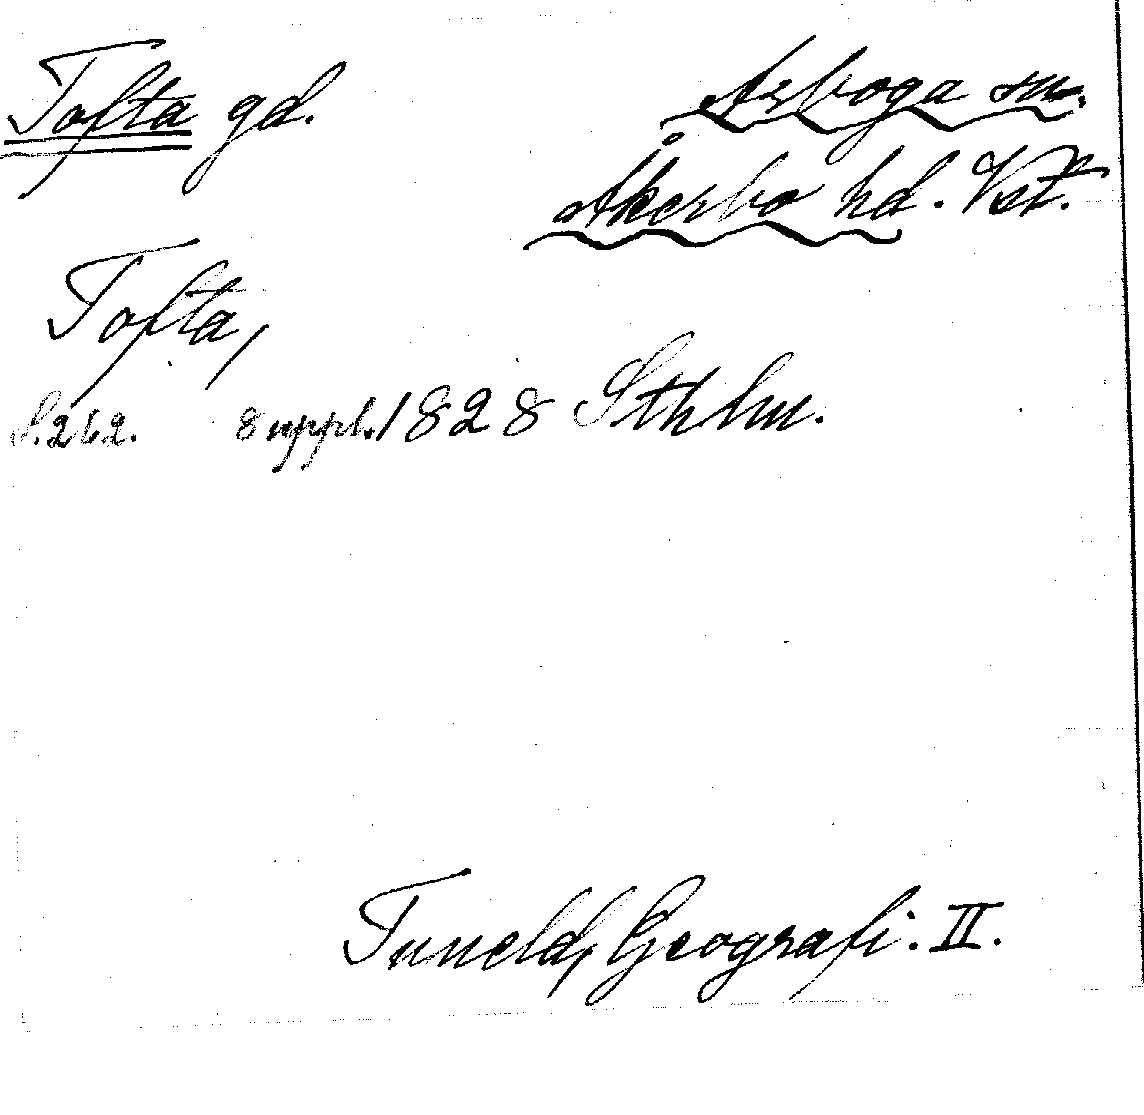 Tofta gd.
Arboga sn.
Åkerbo hd. Vst.
Tofta,
S. 262. 8 uppl. 1828 Sthlm.
Tuneld, Geografi. II.